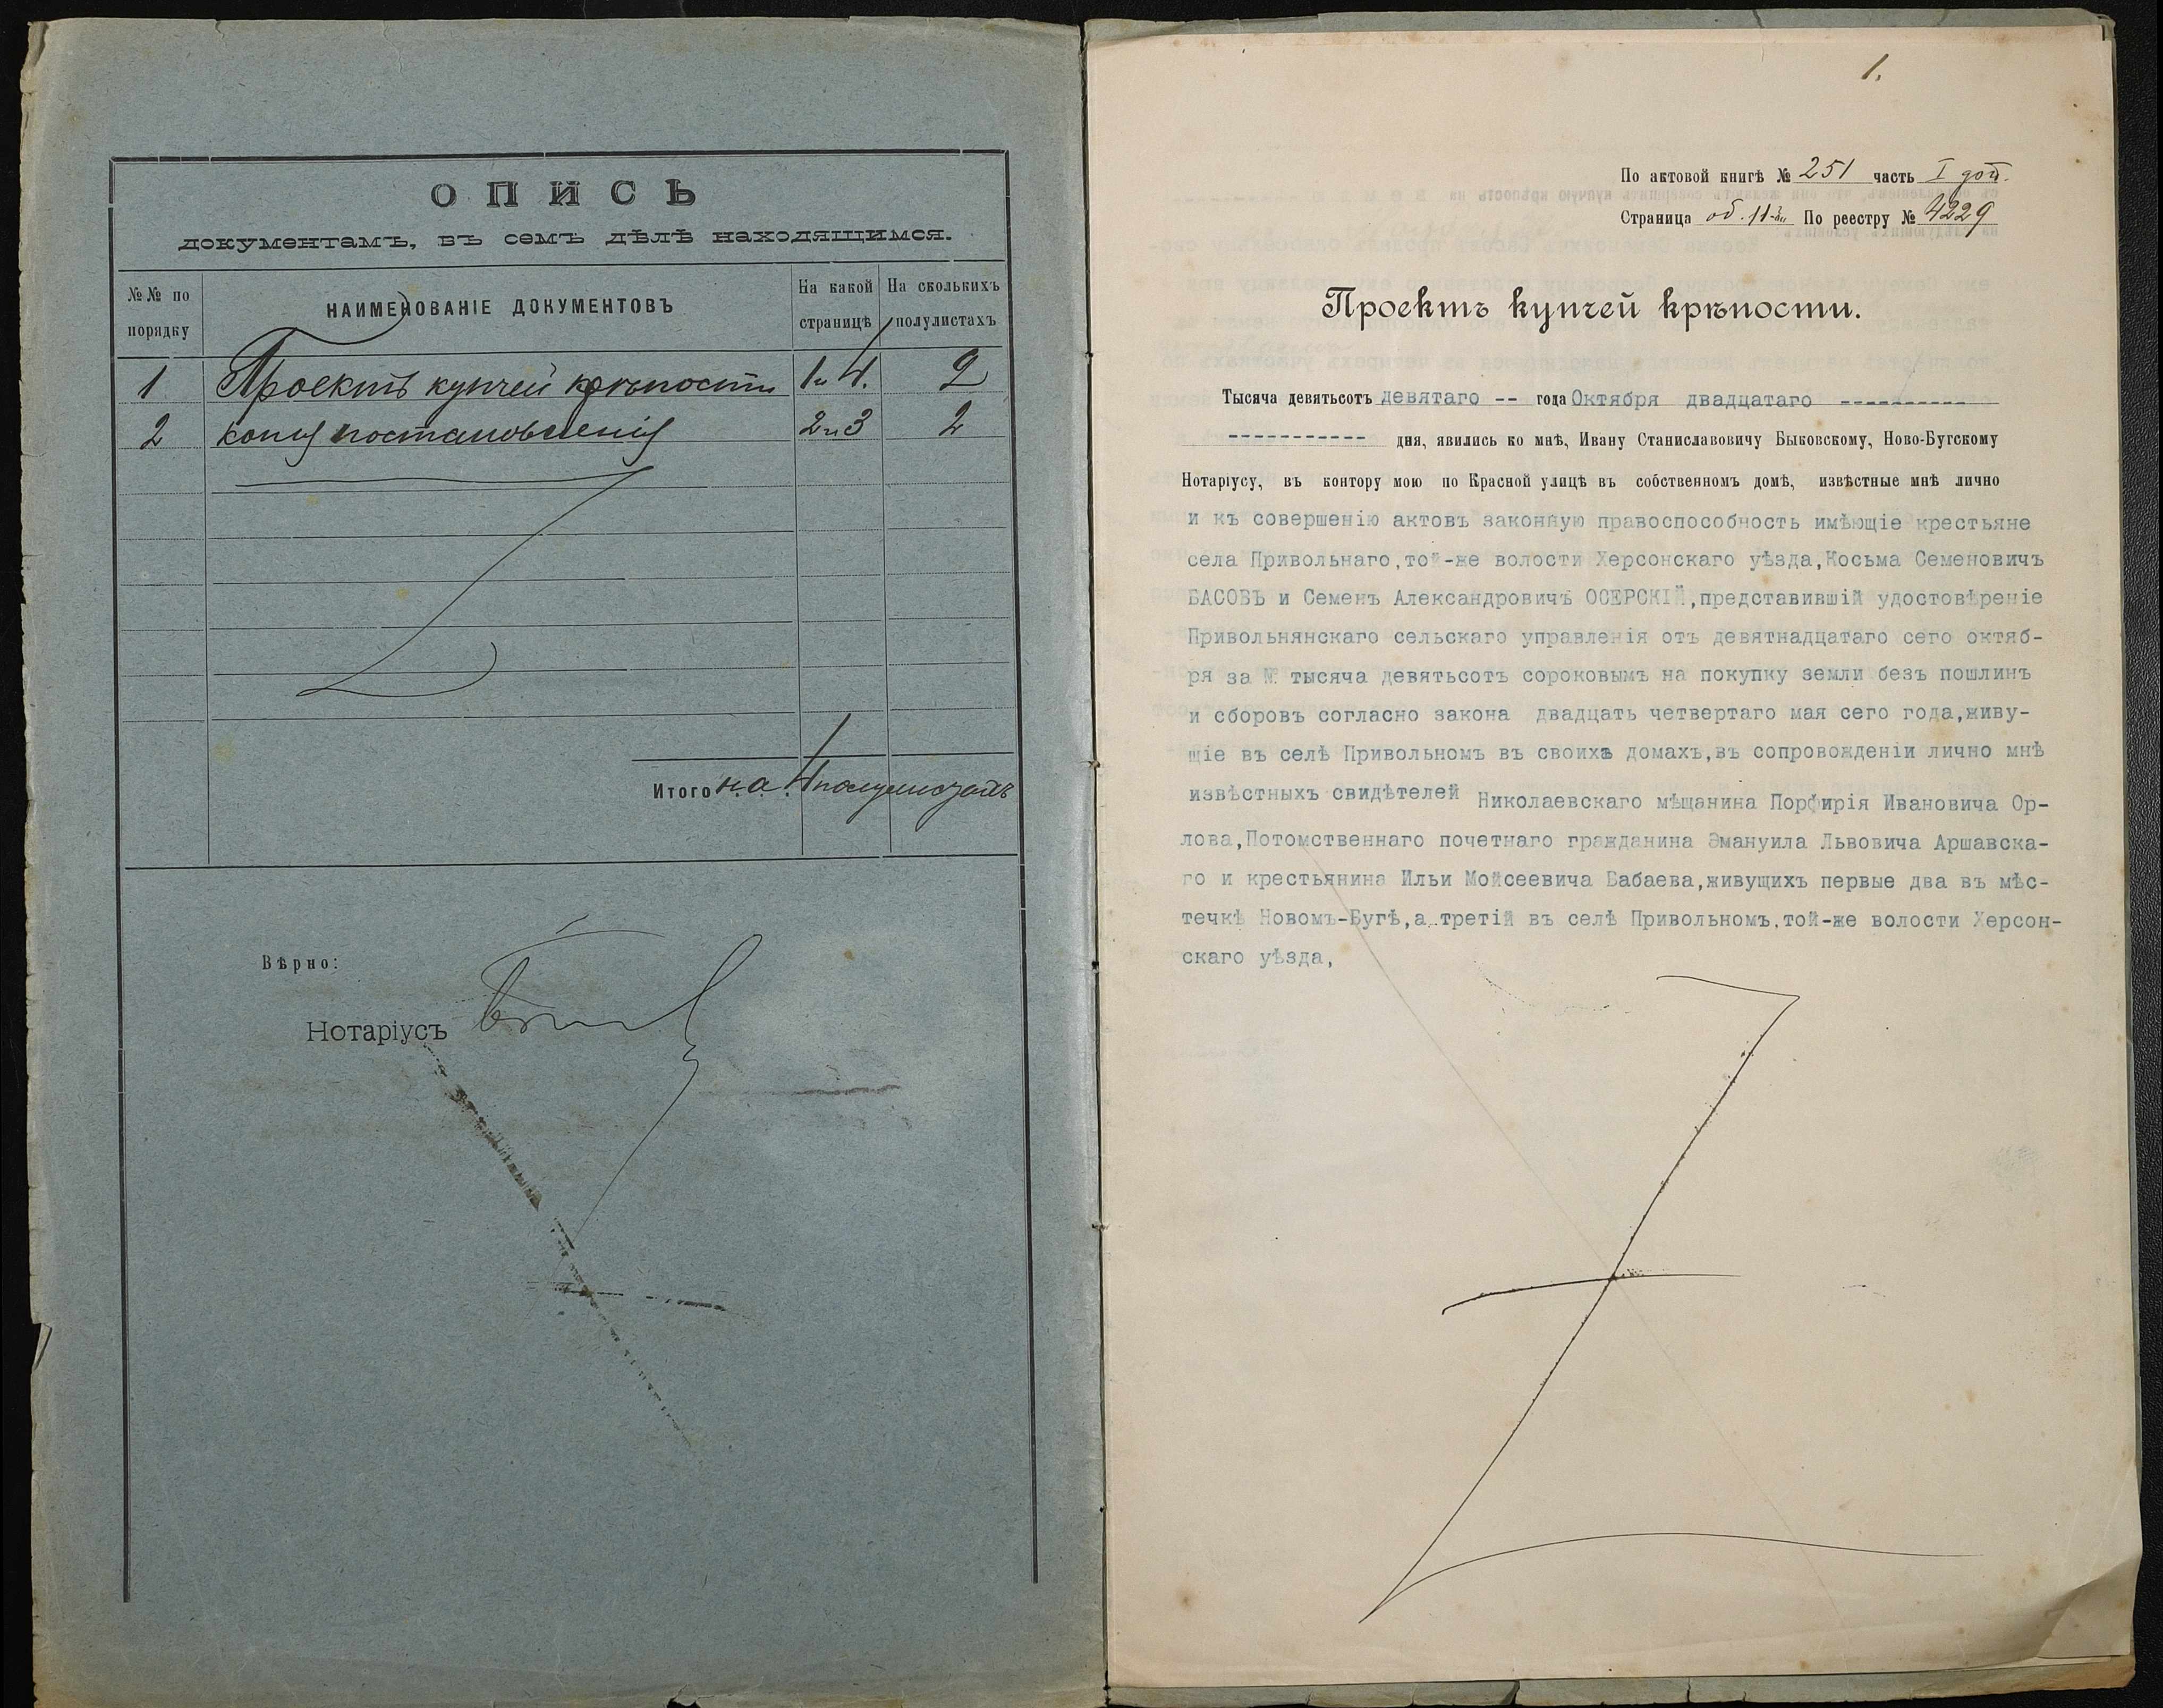 ОПИСЬ
документамъ, въ семъ дѣлѣ находящимся.
№№ по порядку
НАИМЕНОВАНІЕ ДОКУМЕНТОВЪ
На какой страницѣ
На сколькихъ полулистахъ
1 Проектъ купчей крѣпости 1 и 4. 2
2 копія постановленія 2 и 3 2
Итого на 4 полулистахъ
Вѣрно:
Нотаріусъ
1.
По актовой книгѣ № 251 часть I
Страница об. 11-й По реестру № 4229
Проектъ купчей крѣпости.
Тысяча девятьсотъ девятаго -- года Октября двадцатаго ----------
----------- дня, явились ко мнѣ, Ивану Станиславовичу Быковскому, Ново-Бугскому
Нотаріусу, въ контору мою по Красной улицѣ въ собственномъ домѣ, извѣстные мнѣ лично
и къ совершенію актовъ законную правоспособность имѣющіе крестьяне
села Привольнаго,той-же волости Херсонскаго уѣзда,Косьма Семеновичъ
БАСОВЪ и Семенъ Александровичъ ОСЕРСКІЙ,представившій удостовѣреніе
Привольнянскаго сельскаго управленія отъ девятнадцатаго сего октяб-
ря за № тысяча девятьсотъ сороковымъ на покупку земли безъ пошлинъ
и сборовъ согласно закона двадцать четвертаго мая сего года,живу-
щіе въ селѣ Привольномъ въ своихъ домахъ,въ сопровожденіи лично мнѣ
извѣстныхъ свидѣтелей Николаевскаго мѣщанина Порфирія Ивановича Ор-
лова,Потомственнаго почетнаго гражданина Эмануила Львовича Аршавска-
го и крестьянина Ильи Мойсеевича Бабаева,живущихъ первые два въ мѣс-
течкѣ Новомъ-Бугѣ,а третій въ селѣ Привольномъ,той-же волости Херсон-
скаго уѣзда,